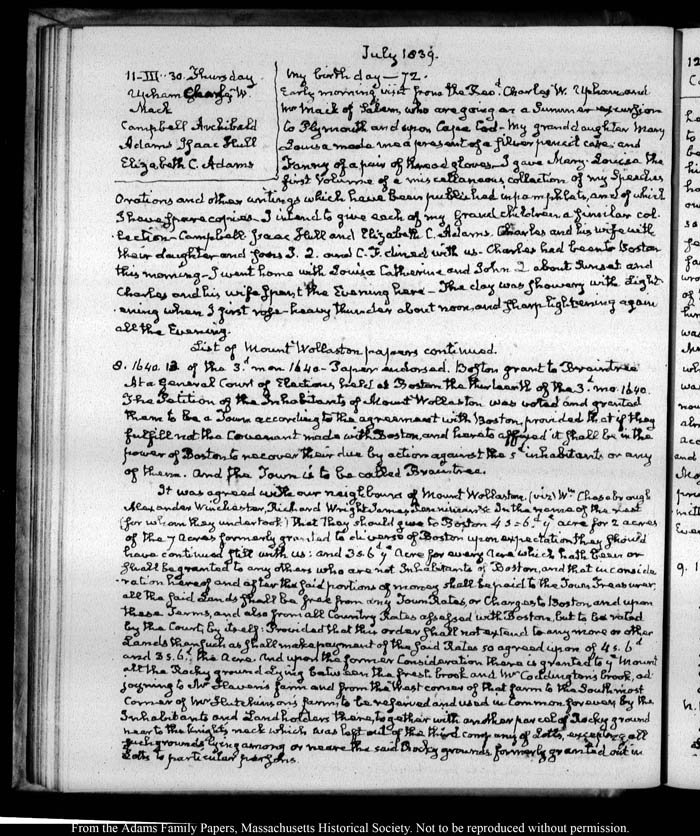 July 1839.
11–III..30. Thursday
Upham Charles W.
Mack
Campbell Archibald
Adams Isaac Hull
Elizabeth C. Adams
My birth day — 72.
Early morning visit from the Revd. Charles W. Upham, and
Mr Mack of Salem, who are going on a Summer excursion
to Plymouth and upon Cape Cod – My granddaughter Mary
Louisa made me a present of a silver pencil case; and
Fanny of a pair of thread gloves – I gave Mary-Louisa the
first Volume of a miscellaneous collection of my Speeches
Orations and other writings which have been published in pamphlets, and of which
I have spare copies – I intend to give each of my Grand children a similar col-
lection – Campbell. Isaac Hull and Elizabeth C. Adams. Charles and his wife with
their daughter and sons J. Q. and C. F. dined with us. Charles had been to Boston
this morning – I went home with Louisa Catherine and John Q about Sunset and
Charles and his wife spent the Evening here – The day was showery with Light-
ening when I first rose – heavy thunder about noon, and sharp lightening again
all the Evening.
List of Mount Wollaston papers continued.
8. 1640. 12 of the 3.d mon 1640 – Paper endorsed. Boston grant to Braintree
At a General Court of Elections held at Boston the thirteenth of the 3.d mo. 1640.
The Petition of the Inhabitants of Mount Wollaston was voted and granted
them to be a Town according to the agreement with Boston, provided that if they
fulfill not the Covenant made with Boston, and hereto affixed it shall be in the
power of Boston to recover their due by action against the sd inhabitants or any
of them. And the Town is to be called Braintree.
It was agreed with our neighbours of Mount Wollaston (viz) Wm Cheseborough
Alexander Winchester, Richard Wright, James &c In the name of the rest
(for whom they undertook) That they should give to Boston 4s=6d ye acre for 2 acres
of the 7 acres formerly granted to divers of Boston upon expectation they should
have continued still with us: and 3s=6d ye Acre for every Acre which hath been or
shall be granted to any others who are not Inhabitants of Boston, and that in conside
ration hereof and after the said portions of money shall be paid to the Town Treasurer,
all the said Lands shall be free from any Town Rates, or Charges to Boston, and upon
these Terms, and also from all Country Rates assessed with Boston, but to be rated
by the Court, by itself: Provided that this order shall not extend to any more or other
Lands than such as shall make payment of the said Rates so agreed upon of 4s. 6d
and 3s. 6d. the Acre. And upon the former Consideration there is granted to ye Mount
all the Rocky ground lying between the fresh brook and Mr Coddington's brook, ad-
joyning to Mr Hawen's farm and from the West corner of that farm to the Southmost
Corner of Mr Hutchinson's farm, to be reserved and used in Common forever, by the
Inhabitants and Landholders there, together with another parcel of Rocky ground
near to the knights neck which was left out of the third company of Lotts, excepting all
such grounds lying among or neare the said Rocky grounds formerly granted out in
Lotts to particular persons.
From the Adams Family Papers, Massachusetts Historical Society. Not to be reproduced without permission.